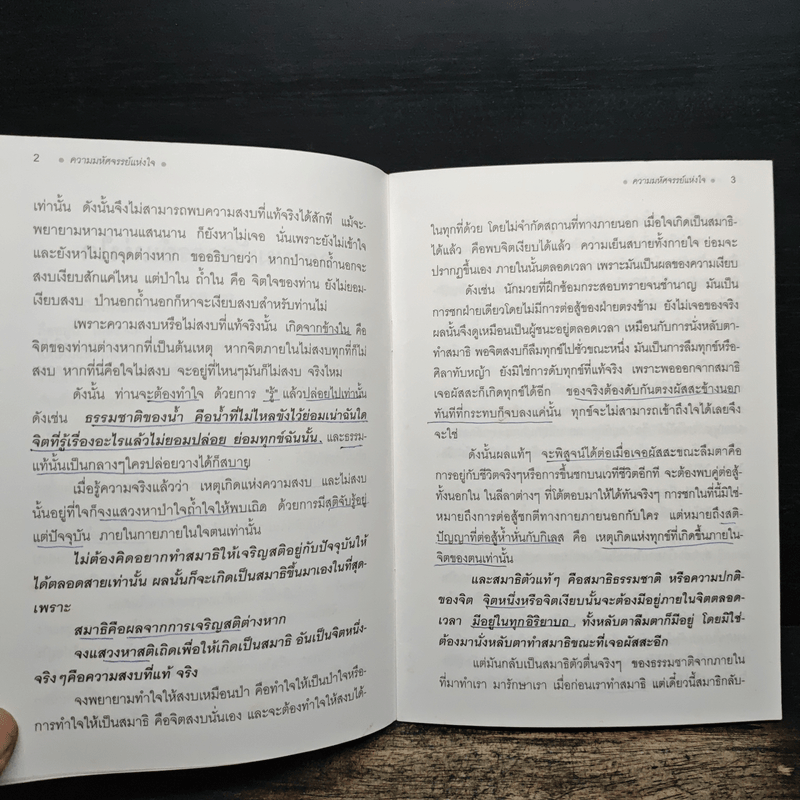 2 ● ความมหัศจรรย์แห่งใจ ●
เท่านั้น ดังนั้นจึงไม่สามารถพบความสงบที่แท้จริงได้สักที แม้จะ-
พยายามหามานานแสนนาน ก็ยังหาไม่เจอ นั่นเพราะยังไม่เข้าใจ
และยังหาไม่ถูกจุดต่างหาก ขออธิบายว่า หากป่านอกถ้ำนอกจะ
สงบเงียบสักแค่ไหน แต่ป่าใน ถ้ำใน คือ จิตใจของท่าน ยังไม่ยอม-
เงียบสงบ ป่านอกถ้ำนอกก็หาจะเงียบสงบสำหรับท่านไม่
เพราะความสงบหรือไม่สงบที่แท้จริงนั้น เกิดจากข้างใน คือ
จิตของท่านต่างหากที่เป็นต้นเหตุ หากจิตภายในไม่สงบทุกที่ก็ไม่
สงบ หากที่นี่คือใจไม่สงบ จะอยู่ที่ไหนๆมันก็ไม่สงบ จริงไหม
ดังนั้น ท่านจะต้องทำใจ ด้วยการ "รู้" แล้วปล่อยไปเท่านั้น
ดังเช่น ธรรมชาติของน้ำ คือน้ำที่ไม่ไหลขังไว้ย่อมเน่าฉันใด
จิตที่รู้เรื่องอะไรแล้วไม่ยอมปล่อย ย่อมทุกข์ฉันนั้น. และธรรม-
แท้นั้นเป็นกลางๆใครปล่อยวางได้ก็สบาย
เมื่อรู้ความจริงแล้วว่า เหตุเกิดแห่งความสงบ และไม่สงบ
นั้นอยู่ที่ใจก็จงแสวงหาป่าใจถ้ำใจให้พบเถิด ด้วยการมีสติจับรู้อยู่
แต่ปัจจุบัน ภายในกายภายในใจตนเท่านั้น
ไม่ต้องคิดอยากทำสมาธิให้เจริญสติอยู่กับปัจจุบันให้
ได้ตลอดสายเท่านั้น ผลนั้นก็จะเกิดเป็นสมาธิขึ้นมาเองในที่สุด-
เพราะ
สมาธิคือผลจากการเจริญสติต่างหาก
จงแสวงหาสติเถิดเพื่อให้เกิดเป็นสมาธิ อันเป็นจิตหนึ่ง-
จริงๆคือความสงบที่แท้ จริง
จงพยายามทำใจให้สงบเหมือนป่า คือทำใจให้เป็นป่าใจหรือ-
การทำใจให้เป็นสมาธิ คือจิตสงบนั่นเอง และจะต้องทำใจให้สงบได้-
● ความมหัศจรรย์แห่งใจ ● 3
ในทุกที่ด้วย โดยไม่จำกัดสถานที่ทางภายนอก เมื่อใจเกิดเป็นสมาธิ-
ได้แล้ว คือพบจิตเงียบได้แล้ว ความเย็นสบายทั้งกายใจ ย่อมจะ
ปรากฏขึ้นเอง ภายในนั้นตลอดเวลา เพราะมันเป็นผลของความเงียบ
ดังเช่น นักมวยที่ฝึกซ้อมกระสอบทรายจนชำนาญ มันเป็น
การชกฝ่ายเดียวโดยไม่มีการต่อสู้ของฝ่ายตรงข้าม ยังไม่เจอของจริง
ผลนั้นจึงดูเหมือนเป็นผู้ชนะอยู่ตลอดเวลา เหมือนกับการนั่งหลับตา-
ทำสมาธิ พอจิตสงบก็ลืมทุกข์ไปชั่วขณะหนึ่ง มันเป็นการลืมทุกข์หรือ-
ศิลาทับหญ้า ยังมิใช่การดับทุกข์ที่แท้จริง เพราะพอออกจากสมาธิ
เจอผัสสะก็เกิดทุกข์ได้อีก ของจริงต้องดับกันตรงผัสสะข้างนอก
ทันทีที่กระทบก็จบลงแค่นั้น ทุกข์จะไม่สามารถเข้าถึงใจได้เลยจึง
จะใช่
ดังนั้นผลแท้ๆ จะพิสูจน์ได้ต่อเมื่อเจอผัสสะขณะลืมตาคือ
การอยู่กับชีวิตจริงๆหรือการขึ้นชกบนเวทีชีวิตอีกที จะต้องพบคู่ต่อสู้-
ทั้งนอกใน ในลีลาต่างๆ ที่โต้ตอบมาให้ได้ทันจริงๆ การชกในที่นี้มิใช่-
หมายถึงการต่อสู้ชกตีทางกายภายนอกกับใคร แต่หมายถึงสติ-
ปัญญาที่ต่อสู้ห้ำหั่นกับกิเลส คือ เหตุเกิดแห่งทุกข์ที่เกิดขึ้นภายใน-
จิตของตนเท่านั้น
และสมาธิตัวแท้ๆ คือสมาธิธรรมชาติ หรือความปกติ
ของจิต จิตหนึ่งหรือจิตเงียบนั้นจะต้องมีอยู่ภายในจิตตลอด-
เวลา มีอยู่ในทุกอิริยาบถ. ทั้งหลับตาลืมตาก็มีอยู่ โดยมิใช่-
ต้องมานั่งหลับตาทำสมาธิขณะที่เจอผัสสะอีก
แต่มันกลับเป็นสมาธิตัวตื่นจริงๆ ของธรรมชาติจากภายใน
ที่มาทำเรา มารักษาเรา เมื่อก่อนเราทำสมาธิ แต่เดี๋ยวนี้สมาธิกลับ-